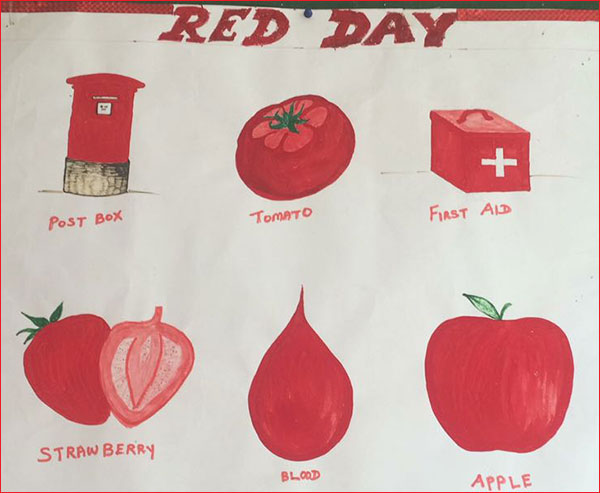 RED DAY
POST BOX
TOMATO
FIRST AID
STRAWBERRY
BLOOD
APPLE